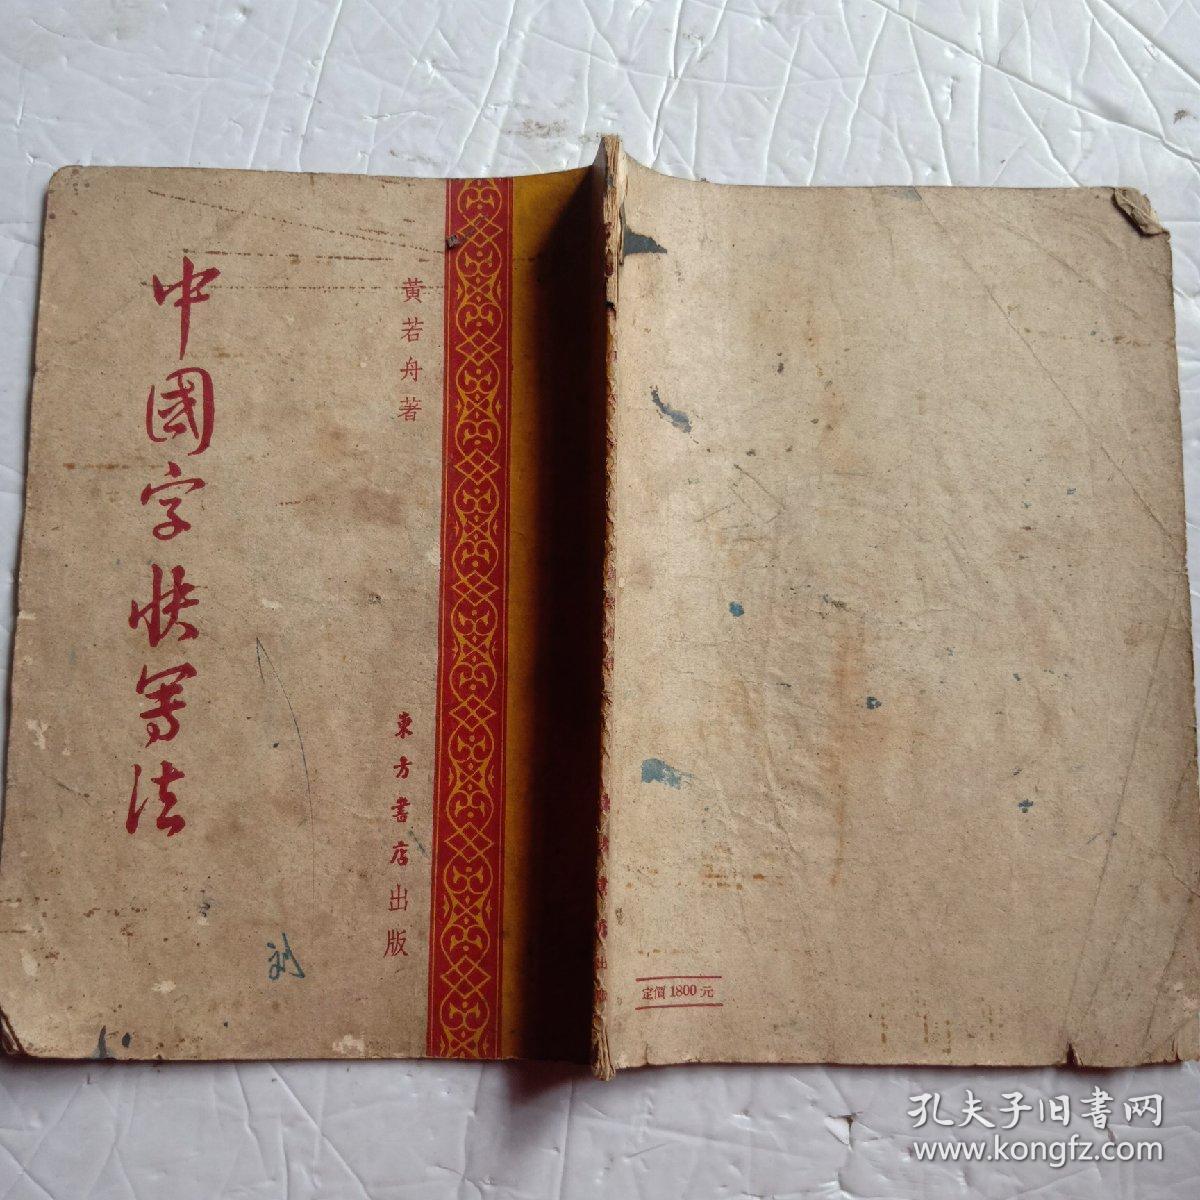 中國字快寫法
黃若舟著
東方書店出版
定價1800元
孔夫子旧書网
www.kongfz.com